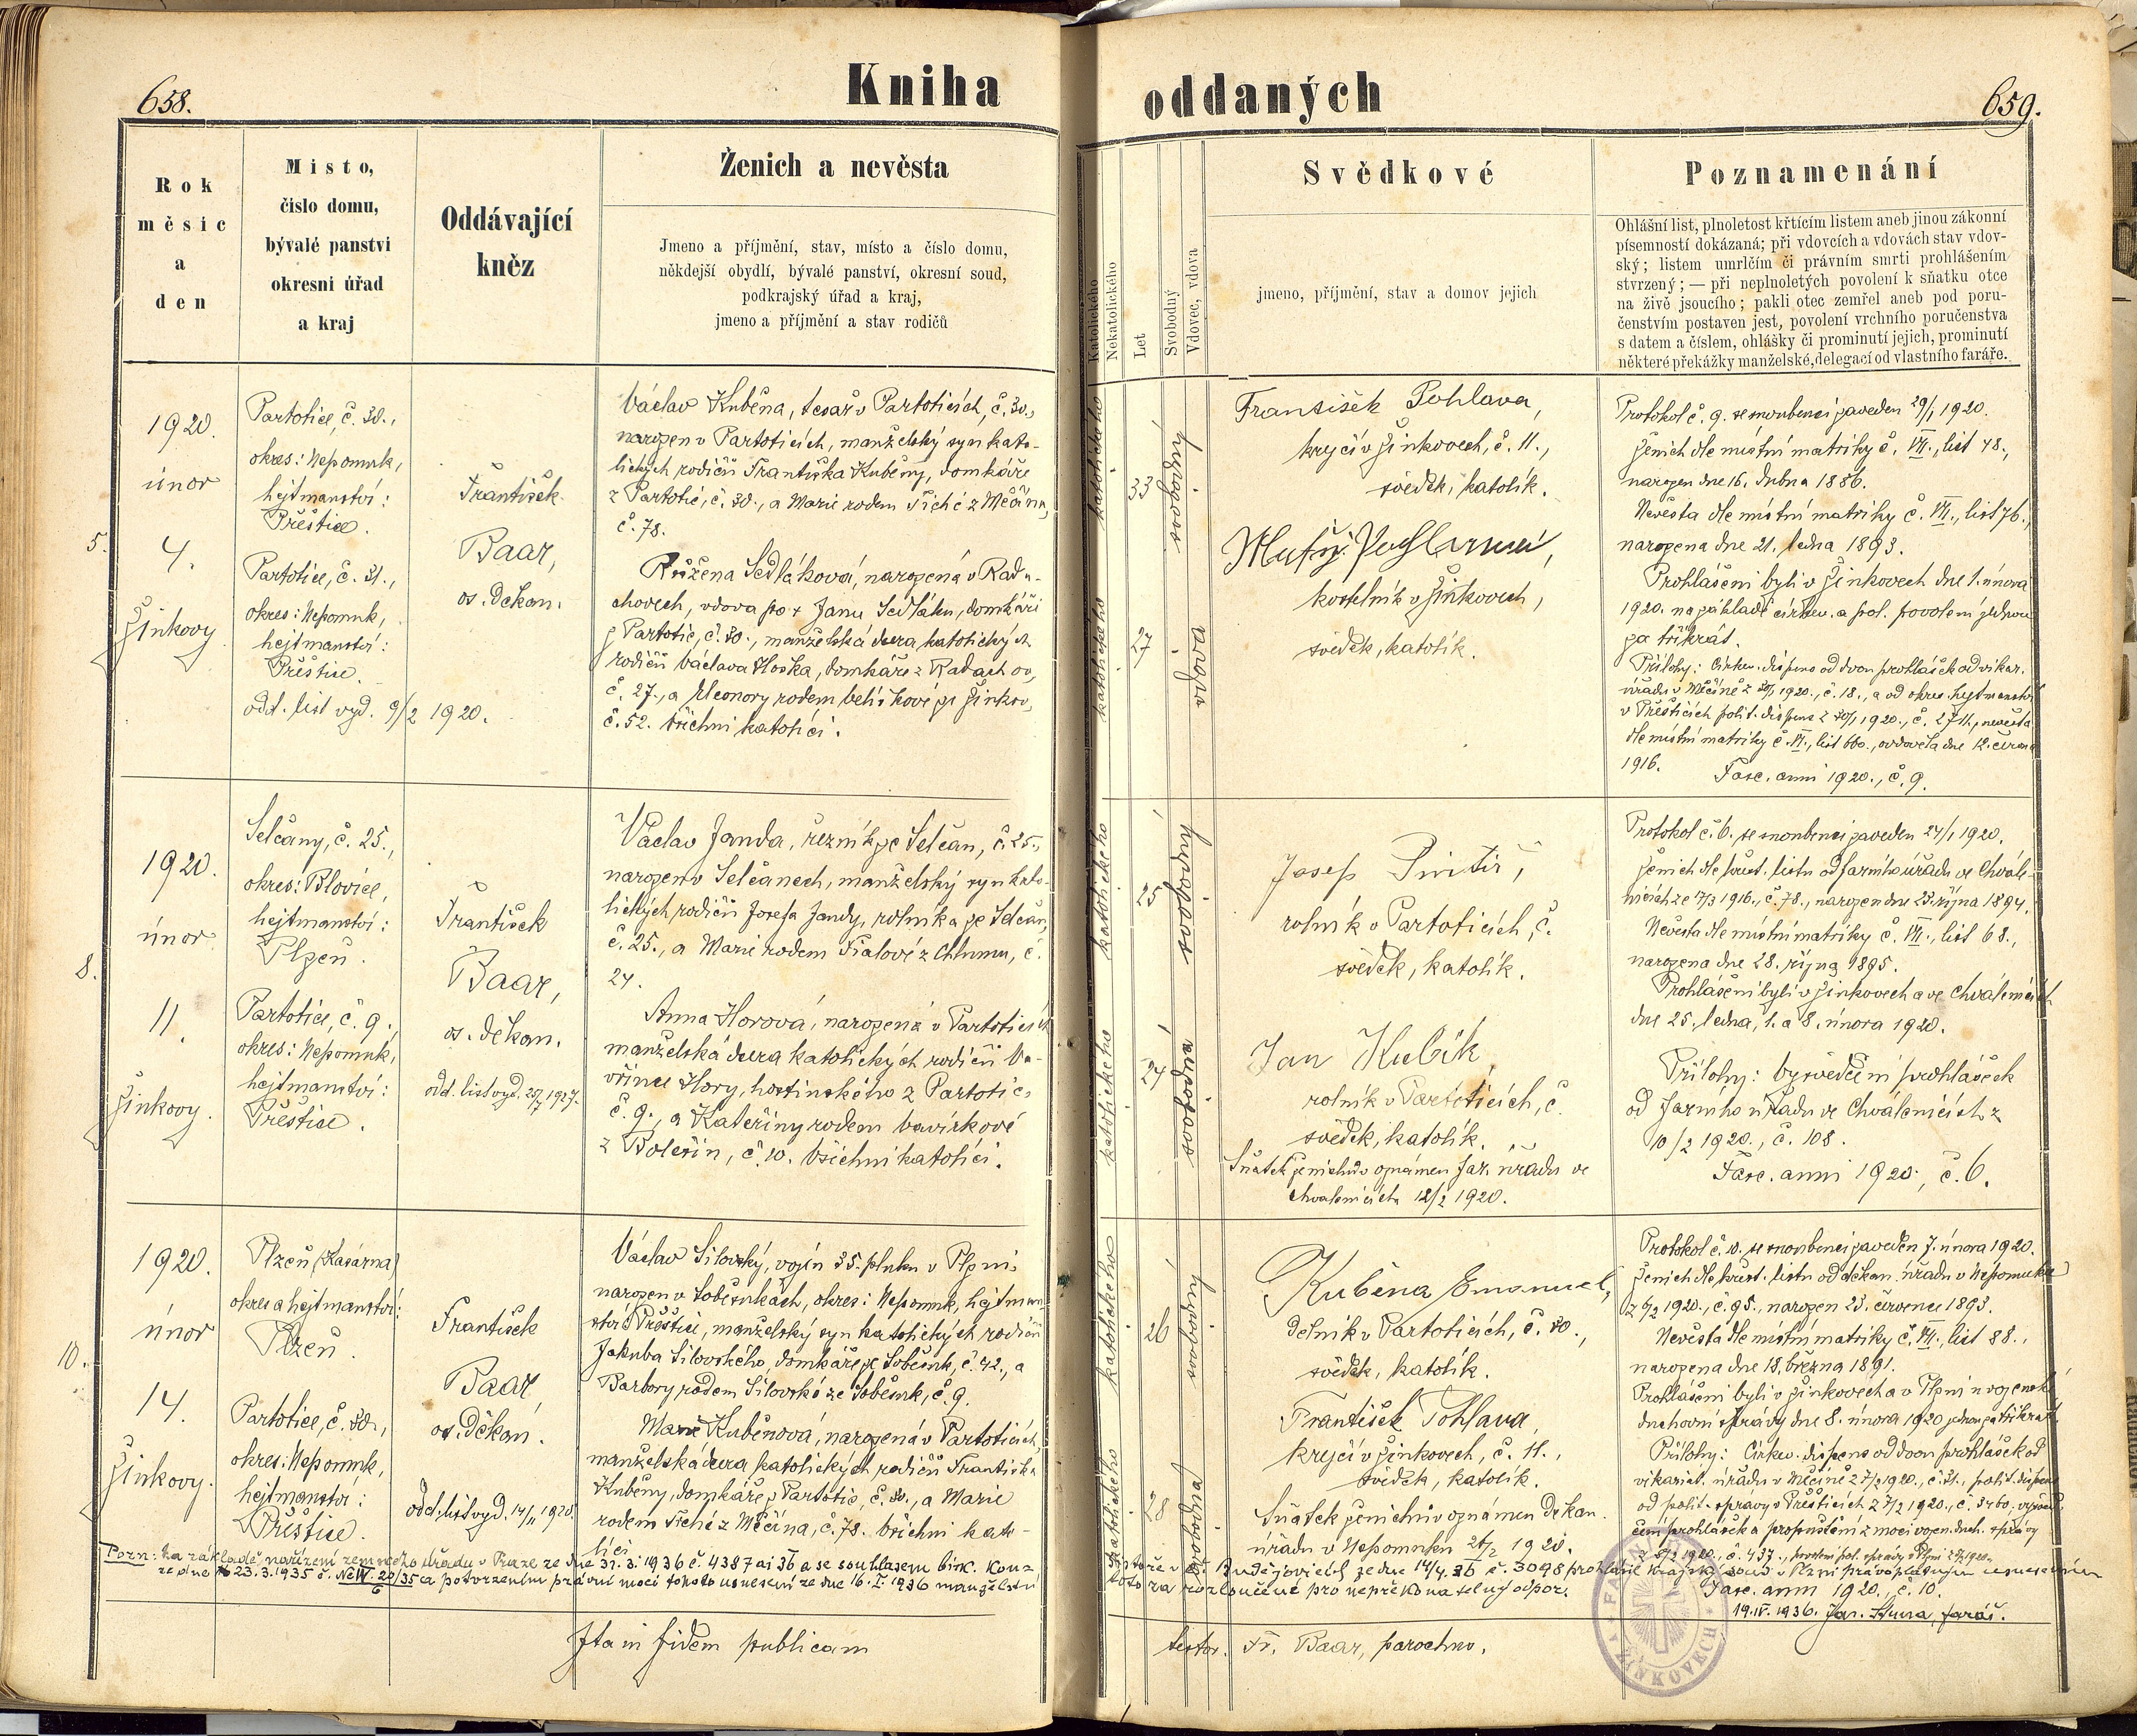 658.
Kniha
Rok
měsíc
a
den
Místo,
číslo domu,
bývalé panství
okresní úřad
a kraj
Oddávající
kněz
Ženich a nevěsta
Jmeno a příjmění, stav, místo a číslo domu,
někdejší obydlí, bývalé panství, okresní soud,
podkrajský úřad a kraj,
jmeno a příjmění a stav rodičů
5.
1920.
únor
4.
Žinkovy
Partotice, č. 30.,
okres: Nepomuk,
hejtmanství:
Přeštice.
Partotice, č. 31.,
okres: Nepomuk,
hejtmanství:
Přeštice.
odd. list vyd. 9/2 1920.
František
Baar,
os. děkan.
Václav Kuběna, tesař v Partoticích, č. 30.,
narozen v Partoticích, manželský syn kato-
lických rodičů Františka Kuběny, domkáře
z Partotic, č. 30., a Marie rodem Tiché z Měčína,
č. 78.
Růžena Sedláková, narozená v Radu-
chovech, vdova po + Janu Sedláku, domkáři
z Partotic, č. 30., manželská dcera katolických
rodičů Václava Hoška, domkáře z
č. 27., a Eleonory rodem ze Žinkov,
č. 52. Všichni katolíci.
8.
1920.
únor
11.
Žinkovy.
Selčany, č. 25.,
okres: Blovice,
hejtmanství:
Plzeň.
Partotice, č. 9.,
okres: Nepomuk,
hejtmanství:
Přeštice.
František
Baar,
os. děkan.
odd. list vyd. 1927.
Václav Janda, řezník ze Selčan, č. 25.,
narozen v Selčanech, manželský syn kato-
lických rodičů Josefa Jandy, rolníka ze Selčan,
č. 25., a Marie rodem Fialové z Chlumu, č.
24.
Anna Horová, narozená v Partoticích
manželská dcera katolických rodičů Va-
vřince Hory, hostinského z Partotic,
č. 9., a Kateřiny rodem Vavírkové
z Bolešin, č. 10. Všichni katolíci.
10.
1920.
únor
14.
Žinkovy.
Plzeň (Kasárna)
okres a hejtmanství:
Plzeň.
Partotice, č. 30.,
okres: Nepomuk,
hejtmanství:
Přeštice.
František
Baar
os. Děkan.
odd. list vyd. 14/II 1920.
Václav Silovský, vojín 35. pluku v Plzni,
narozen v Soběsukách, okres: Nepomuk, hejtman-
ství Přeštice, manželský syn katolických rodičů
Jakuba Silovského, domkáře ze Soběsuk, č. 42., a
Barbory rodem Silovské ze Soběsuk, č. 9.
Marie Kuběnová, narozená v Partoticích,
manželská dcera katolických rodičů Františka
Kuběny, domkáře z Partotic, č. 30., a Marie
rodem Tiché z Měčína, č. 78. Všichni kato-
líci
Pozn: Na základě nařízení zemského úřadu v Praze ze dne 31. 3. 1936 č. 4387 ai 36 a se souhlasem bisk. Konz-
ze dne 23. 3. 1935 č. a potvrzením právní moci tohoto usnesení ze dne 16. I. 1936 manželství
Ita in fidem publicam
oddaných
659.
Katolického
Nekatolického
Let
Svobodný
Vdovec, vdova
Svědkové
jmeno, příjmění, stav a domov jejich
Poznamenání
Ohlášní list, plnoletost křtícím listem aneb jinou zákonní
písemností dokázaná; při vdovcích a vdovách stav vdov-
ský; listem umrlčím či právním smrti prohlášením
stvrzený; — při neplnoletých povolení k sňatku otce
na živě jsoucího; pakli otec zemřel aneb pod poru-
čenstvím postaven jest, povolení vrchního poručenstva
s datem a číslem, ohlášky či prominutí jejich, prominutí
některé překážky manželské, delegací od vlastního faráře.
katolického
33
svobodný
katolického
27
vdova
František Pohlava,
krejčí v Žinkovech, č. 11.,
svědek, katolík.
kostelník v Žinkovech,
svědek, katolík.
Protokol č. 9. se snoubenci zaveden 29/1 1920.
Ženich dle místní matriky č. VII., list 48.,
narozen dne 16. dubna 1886.
Nevěsta dle místní matriky č. VII., list 76.,
narozena dne 21. ledna 1893.
Prohlášeni byli v Žinkovech dne 1. února
1920. na základě církev. a pol. povolení jednou
za třikrát.
Přílohy: Církev. dispens od dvou prohlášek od vikar.
úřadu v Měčíně z 30/1 1920., č. 18., a od okres. hejtmanství
v Přešticích polit. dispens z 30/1 1920., č. 2711., nevěsta
dle místní matriky č. VI., list 660., ovdověla dne 12. června
1916.
Fasc. anni 1920., č. 9.
katolického
25
svobodný
katolického
24
svobodná
Josef
rolník v Partoticích, č.
svědek, katolík.
Jan Kubík
rolník v Partoticích, č.
svědek, katolík.
Sňatek ženichův oznámen far. úřadu ve
Chválenicích 12/2 1920.
Protokol č. 6. se snoubenci zaveden 24/1 1920.
Ženich dle křest. listu od farního úřadu ve Chvále-
nicích ze 17/3 1916., č. 78., narozen dne 23. října 1894.
Nevěsta dle místní matriky č. VII., list 68.,
narozena dne 28. října 1895.
Prohlášeni byli v Žinkovech a ve Chválenicích
dne 25. ledna, 1. a 8. února 1920.
Přílohy: Vysvědčení prohlášek
od farního úřadu ve Chválenicích z
10/2 1920., č. 108.
Fasc. anni 1920., č. 6.
katolického
26
svobodný
katolického
28
svobodná
Kuběna Emanuel,
dělník v Partoticích, č. 30.,
svědek, katolík.
František Pohlava,
krejčí v Žinkovech, č. 11.,
svědek, katolík.
Sňatek ženichův oznámen Děkan.
úřadu v Nepomuku 26/2 1920.
Protokol č. 10. se snoubenci zaveden 7. února 1920.
Ženich dle křest. listu od děkan. úřadu v Nepomuku
z 6/2 1920., č. 95., narozen 23. července 1893.
Nevěsta dle místní matriky č. VII., list 88.,
narozena dne 18. března 1891.
Prohlášeni byli v Žinkovech a v Plzni u vojenské
duchovní správy dne 8. února 1920 jednou za třikrát.
Přílohy: Církev. dispens od dvou prohlášek od
vikariat. úřadu v Měčíně z 7/2 1920., č. 21., polit. dispens
od polit. správy v Přešticích z 7/2 1920., č. 3460. vysvěd-
čení prohlášek a propuštění z moci vojen. duch. správy
z 8/2 1920., č. 437.,
Fasc. anni 1920., č. 10.
sistoře v Č. Budějovicích ze dne 14/4. 36 č. 3098 prohlásil Krajský soud v Plzni právoplatným usnesením
toto za rozloučené pro nepřekonatelný odpor.
19. IV. 1936. Jan farář.
testor. Fr. Baar, parochus.
FARNÍ
V ŽINKOVECH